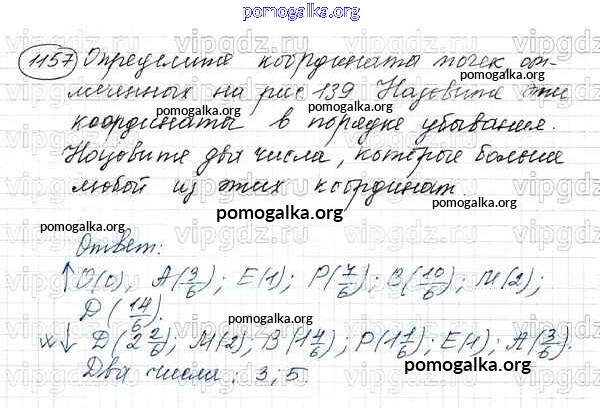 pomogalka.org
1157 Определите координаты точек от-
меченных на рис 139 Назовите эти
координаты в порядке убывания.
Назовите два числа, которые больше
любой из этих координат.
pomogalka.org
Ответ:
↑ O(0), A(3/6); E(1); P(7/6); B(10/6); M(2);
D(14/6).
↓ D(2 2/6); M(2), B(1 4/6); P(1 1/6); E(1); A(3/6).
Два числа: 3; 5.